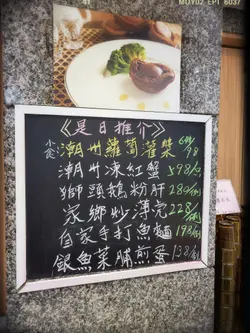 MOY02 EPT 6037
《是日推介》
小食 潮州蘿蔔薈桀 98
潮州凍紅蟹 598/
獅頭鵝粉肝 289/例
家鄉炒薄壳 228/例
自家手打魚麵 198/例
銀魚菜脯煎蛋 138/例